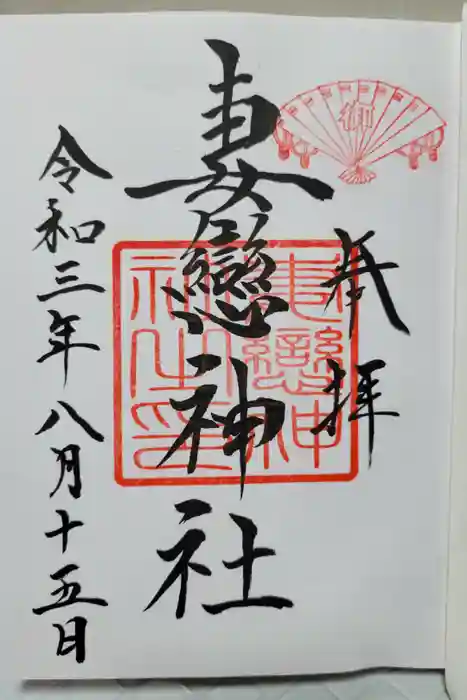 奉拝
妻戀神社
令和三年八月十五日
妻戀神社之印